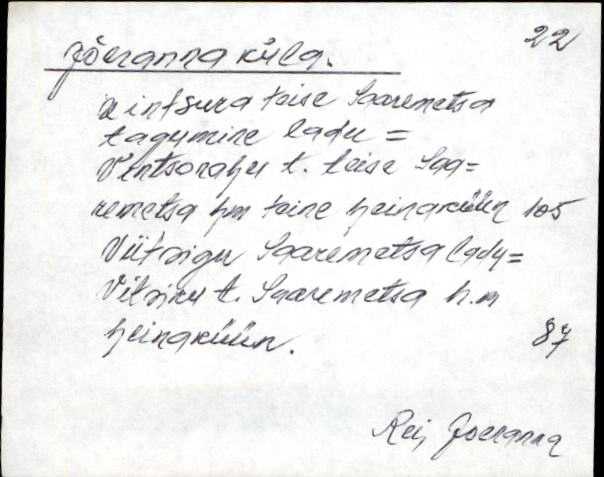 22
Jõeranna küla.
Vintsura teise Saaremetsa
tagumine ladu =
Ventsorahu t. teise Saa=
remetsa hm teine heinaküün 105
Viitsigu Saaremetsa ladu=
Vitsiku t. Saaremetsa h.m
heinaküün. 87
Rei, Joeranna